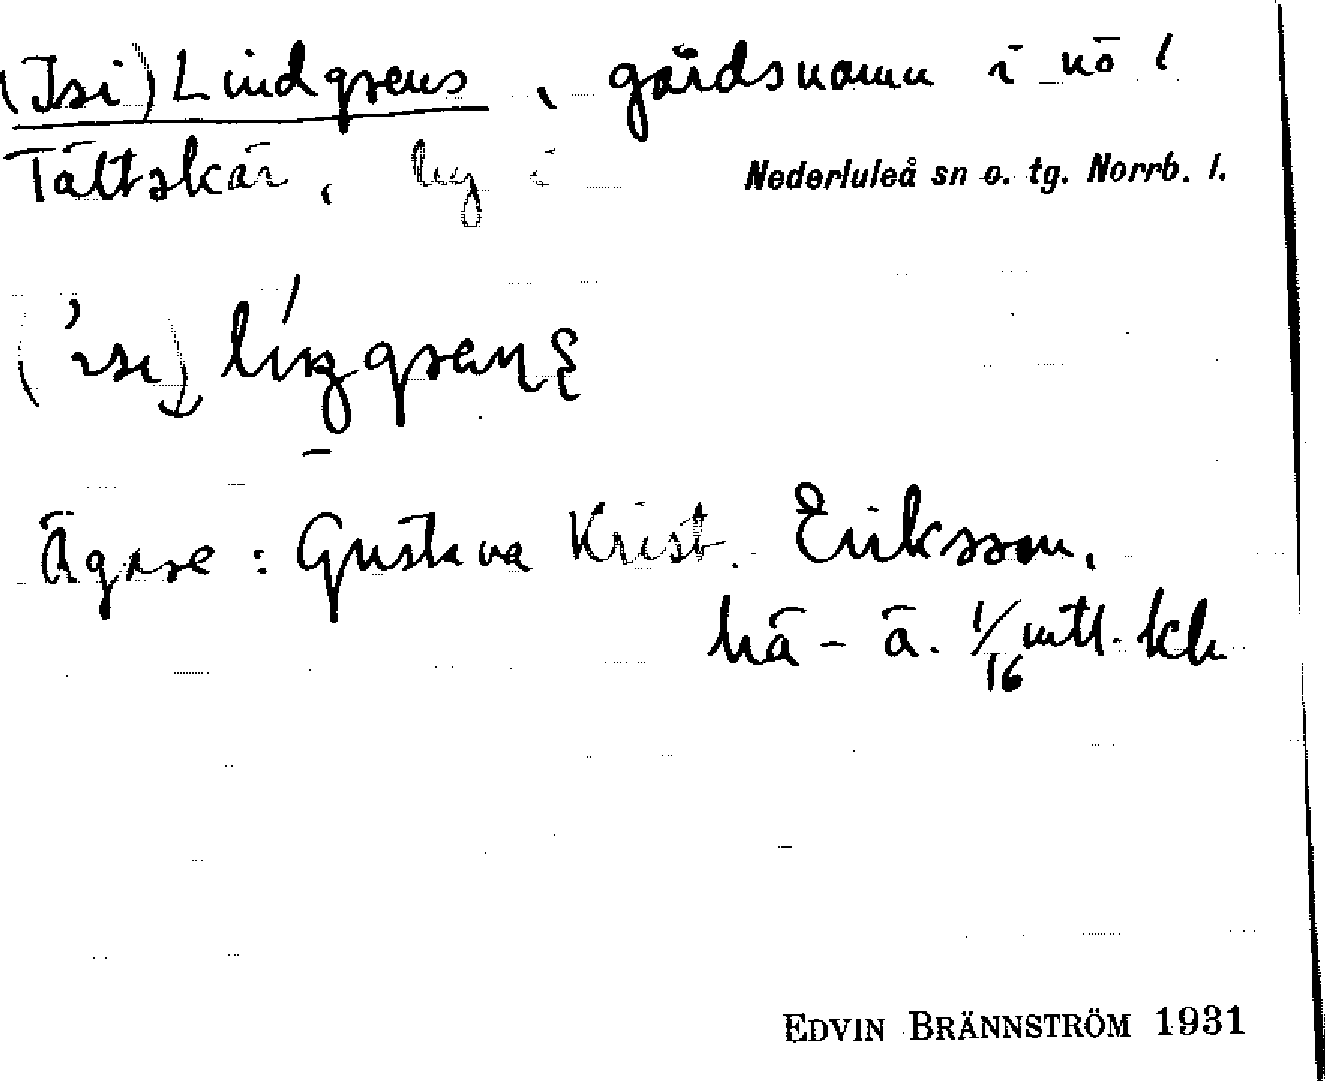 (Isi) Lindgrens, gårdsnamn i nö l
Tättskär, by i Nederluleå sn o. tg. Norrb. l.
Ägare: Gustava Krist. Eriksson,
hä-ä. 1/16 mtl. kh
EDVIN BRÄNNSTRÖM 1931